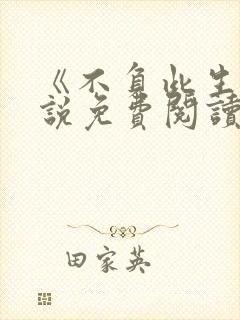 《不負此生
說免費閱讀
田家英